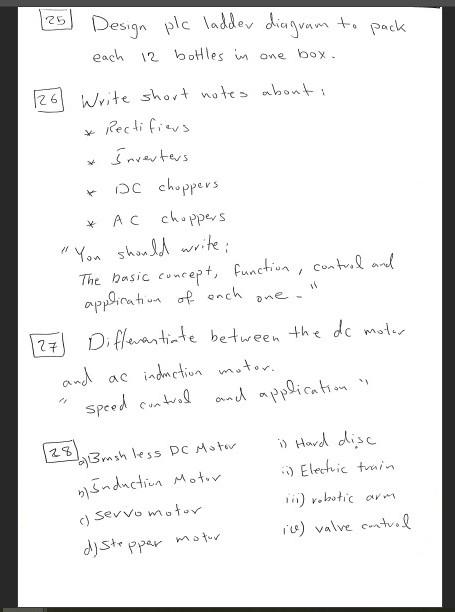 25 Design plc ladder diagram to pack
each 12 bottles in one box.
26 Write short notes about:
* Rectifiers
* Inverters
* DC choppers
* AC choppers
"You should write:
The basic concept, function, control and
application of each one."
27 Differentiate between the dc motor
and ac induction motor.
" speed control and application "
28 a) Brushless DC Motor i) Hard disc
b) Induction Motor ii) Electric train
c) Servo motor iii) robotic arm
d) Stepper motor iv) valve control